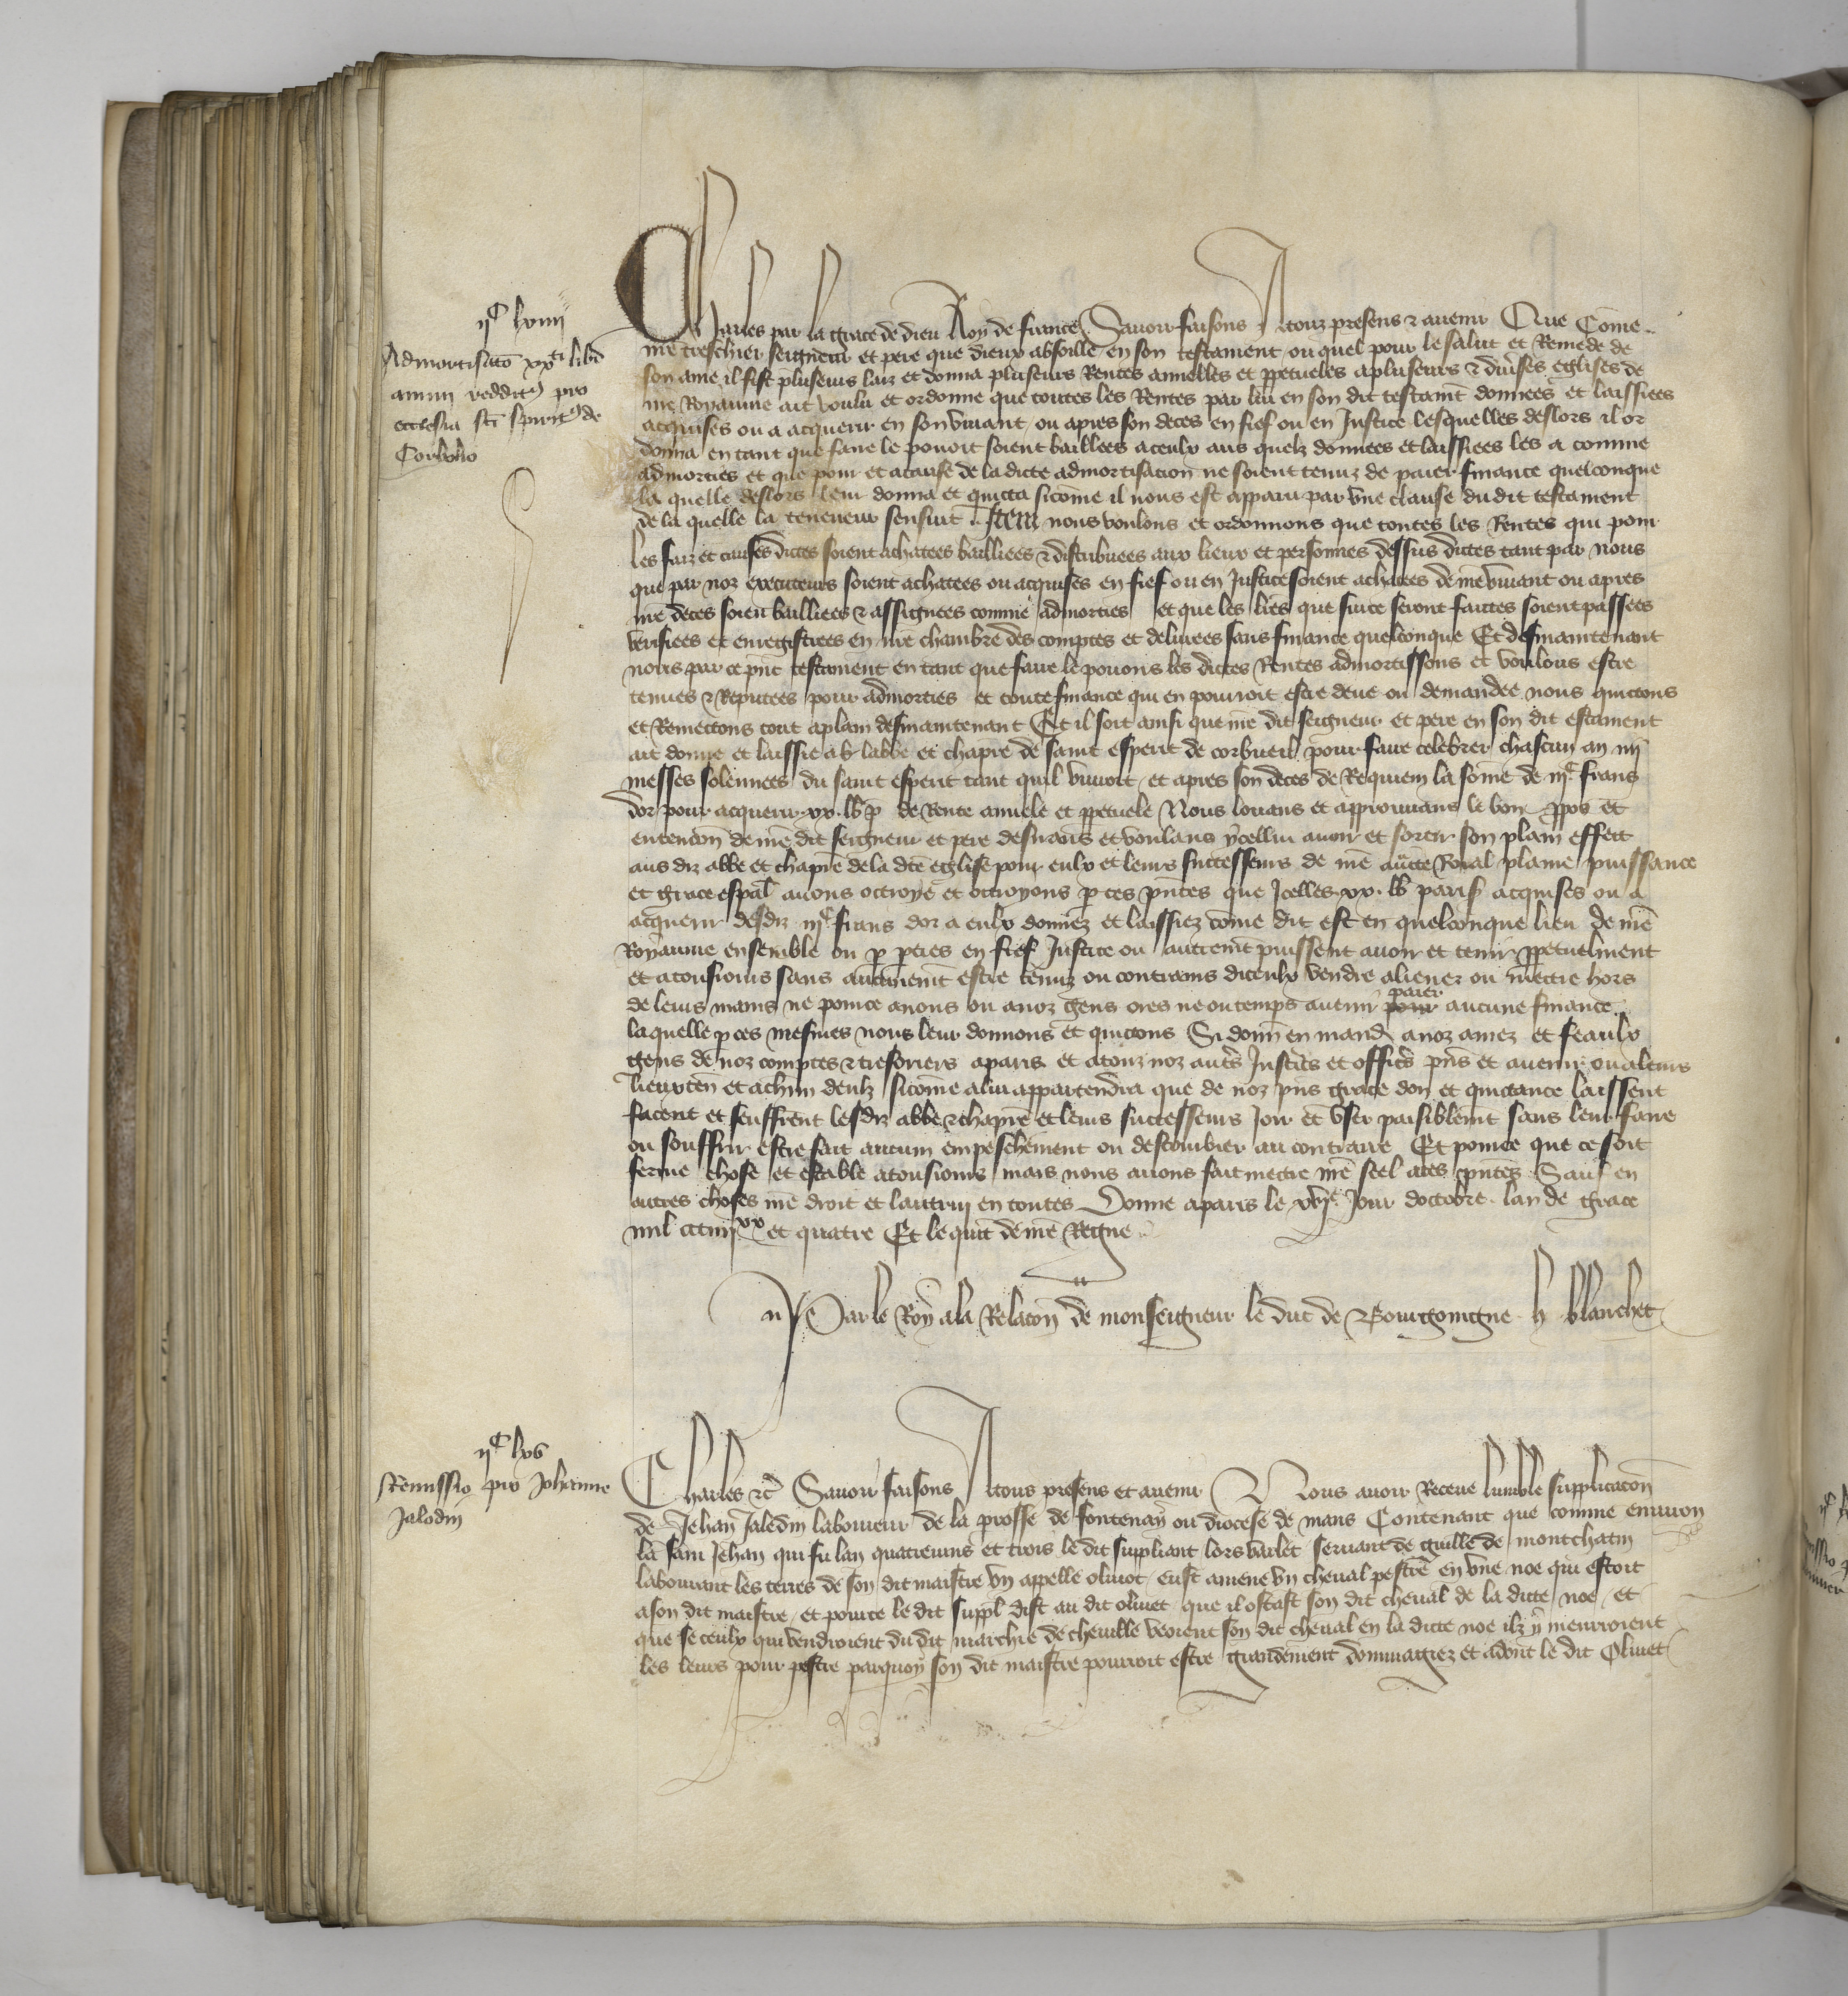 ijC lxiiij
Admortisatio xxti libr
annui redditus pro
ecclesia sti spirit9 de
Corbolio
Charles par la grace de dieu Roy de france Savoir faisons A touz presens & avenir Que Come
nre treschier seigneur et pere que dieux absoille en son testament ou quel pour le salut et Remede de
son ame il fist pluseurs laiz et donna pluseurs Rentes annelles et ppetueles a pluseurs & divses eglises de
nre Royaume ait voulu et ordonne que toutes les Rentes par lui en son dit testamt donnees et laissiees
acquises ou a acquerir en son vivant ou apres son deces en fief ou en Justice lesquelles deslors il or
donna en tant que faire le povoit soient baillees a ceulx aus quelz donnees et laissiees les a comme
admorties et que pour et a cause de la dicte admortisacion ne soient tenuz de paier finance quelconque
la quelle deslors leur donna et quicta sicome il nous est apparu par une clause du dit testament
de la quelle la teneur sensuit Item nous voulons et ordonnons que toutes les Rentes qui pour
les faiz et causes dictes soient achatees bailliees & distribuees aux lieux et personnes dessus dictes tant par nous
que par noz executeurs soient achatees ou acquises en fief ou en Justice soient achatees de nre vivant ou apres
nre deces soien bailliees & assignees comme admorties et que les lres que sur ce seront faictes soient passees
verifiees et enregistrees en nre chambre des comptes et delivrees sans finance quelconque Et desmaintenant
nous par ce pnt testament en tant que faire le povons les dictes Rentes admortissons et voulons estre
tenues & Reputees pour admorties et toute finance qui en pourroit estre deue ou demandee nous quictons
et Remettons tout a plain desmaintenant Et il soit ainsi que nre dit seigneur et pere en son dit estament
ait donne et laissie a labbe et chapre de saint esperit de corbueil pour faire celebrer chascun an iiij
messes solennees du saint esperit tant quil vivroit et apres son deces de Requiem la some de iijC frans
dor pour acquerir xx lb p de Rente annuele et ppetuele Nous louans et approuvans le bon ppos et
entencion de nre dit seigneur et pere desirans et voulans ycellui avoir et sortir son plain effect
aus diz abbe et chapre de la dte eglise pour eulx et leurs successeurs de nre aucte Roial plaine puissance
et grace espal avons octroye et octroyons p ces pntes que Icelles xx lb paris acquises ou a
acquerir desdiz iijC frans dor a eulx donnez et laissiez come dit est en quelconque lieu de nre
Royaume ensemble ou p pties en fief Justice ou autremt puissent avoir et tenir ppetuelment
et a tousiours sans autrement estre tenuz ou contrains diceulx vendre aliener ou mettre hors
de leurs mains ne pource a nous ou a noz gens ores ne ou temps avenir paier aucune finance
laquelle p ces mesmes nous leur donnons et quictons Si donn en mand a noz amez et feaulx
gens de noz comptes & tresoriers a paris et a touz noz autres Justiciers et officiers pns et avenir ou a leurs
lieuxten et a chun deulz sicome a lui appartendra que de noz pns grace don et quictance laissent
facent et seuffrent lesdiz abbe & chapre et leurs successeurs Joir et user paisiblement sans leur faire
ou souffrir estre fait aucun empeschement ou destourbier au contraire Et pource que ce soit
ferme chose et estable a tousiours mais nous avons fait mettre nre seel a ces pntes Sauf en
autres choses nre droit et lautrui en toutes Donne a paris le xvije Jour doctobre lan de grace
mil ccc iiijxx et quatre Et le quit de nre Regne
Par le Roy a la Relacon de monseigneur le duc de Bourgoingne h blanchet
ijC lxv
Remissio pro Johanne
Jaledin
Charles &c Savoir faisons A tous presens et avenir Nous avoir Receue lumble supplicacon
de Jehan Jaledin laboureur de la prosse de fontenay ou diocese de mans Contenant que comme environ
la saint Jehan qui fu lan quatrevins et trois le dit suppliant lors varlet servant de guille de montchatin
labourant les terres de son dit maistre un appelle olivet eust amene un cheval pestre en une noe qui estoit
a son dit maistre et pource le dit suppl dist au dit olivet que il ostast son dit cheval de la dicte noe et
que se ceulx qui vendroient du dit marchie de cheville veoient son dit cheval en la dicte noe ilz y menrroient
les leurs pour pestre parquoy son dit maistre pourroit estre grandement dommagiez et adont le dit Olivet